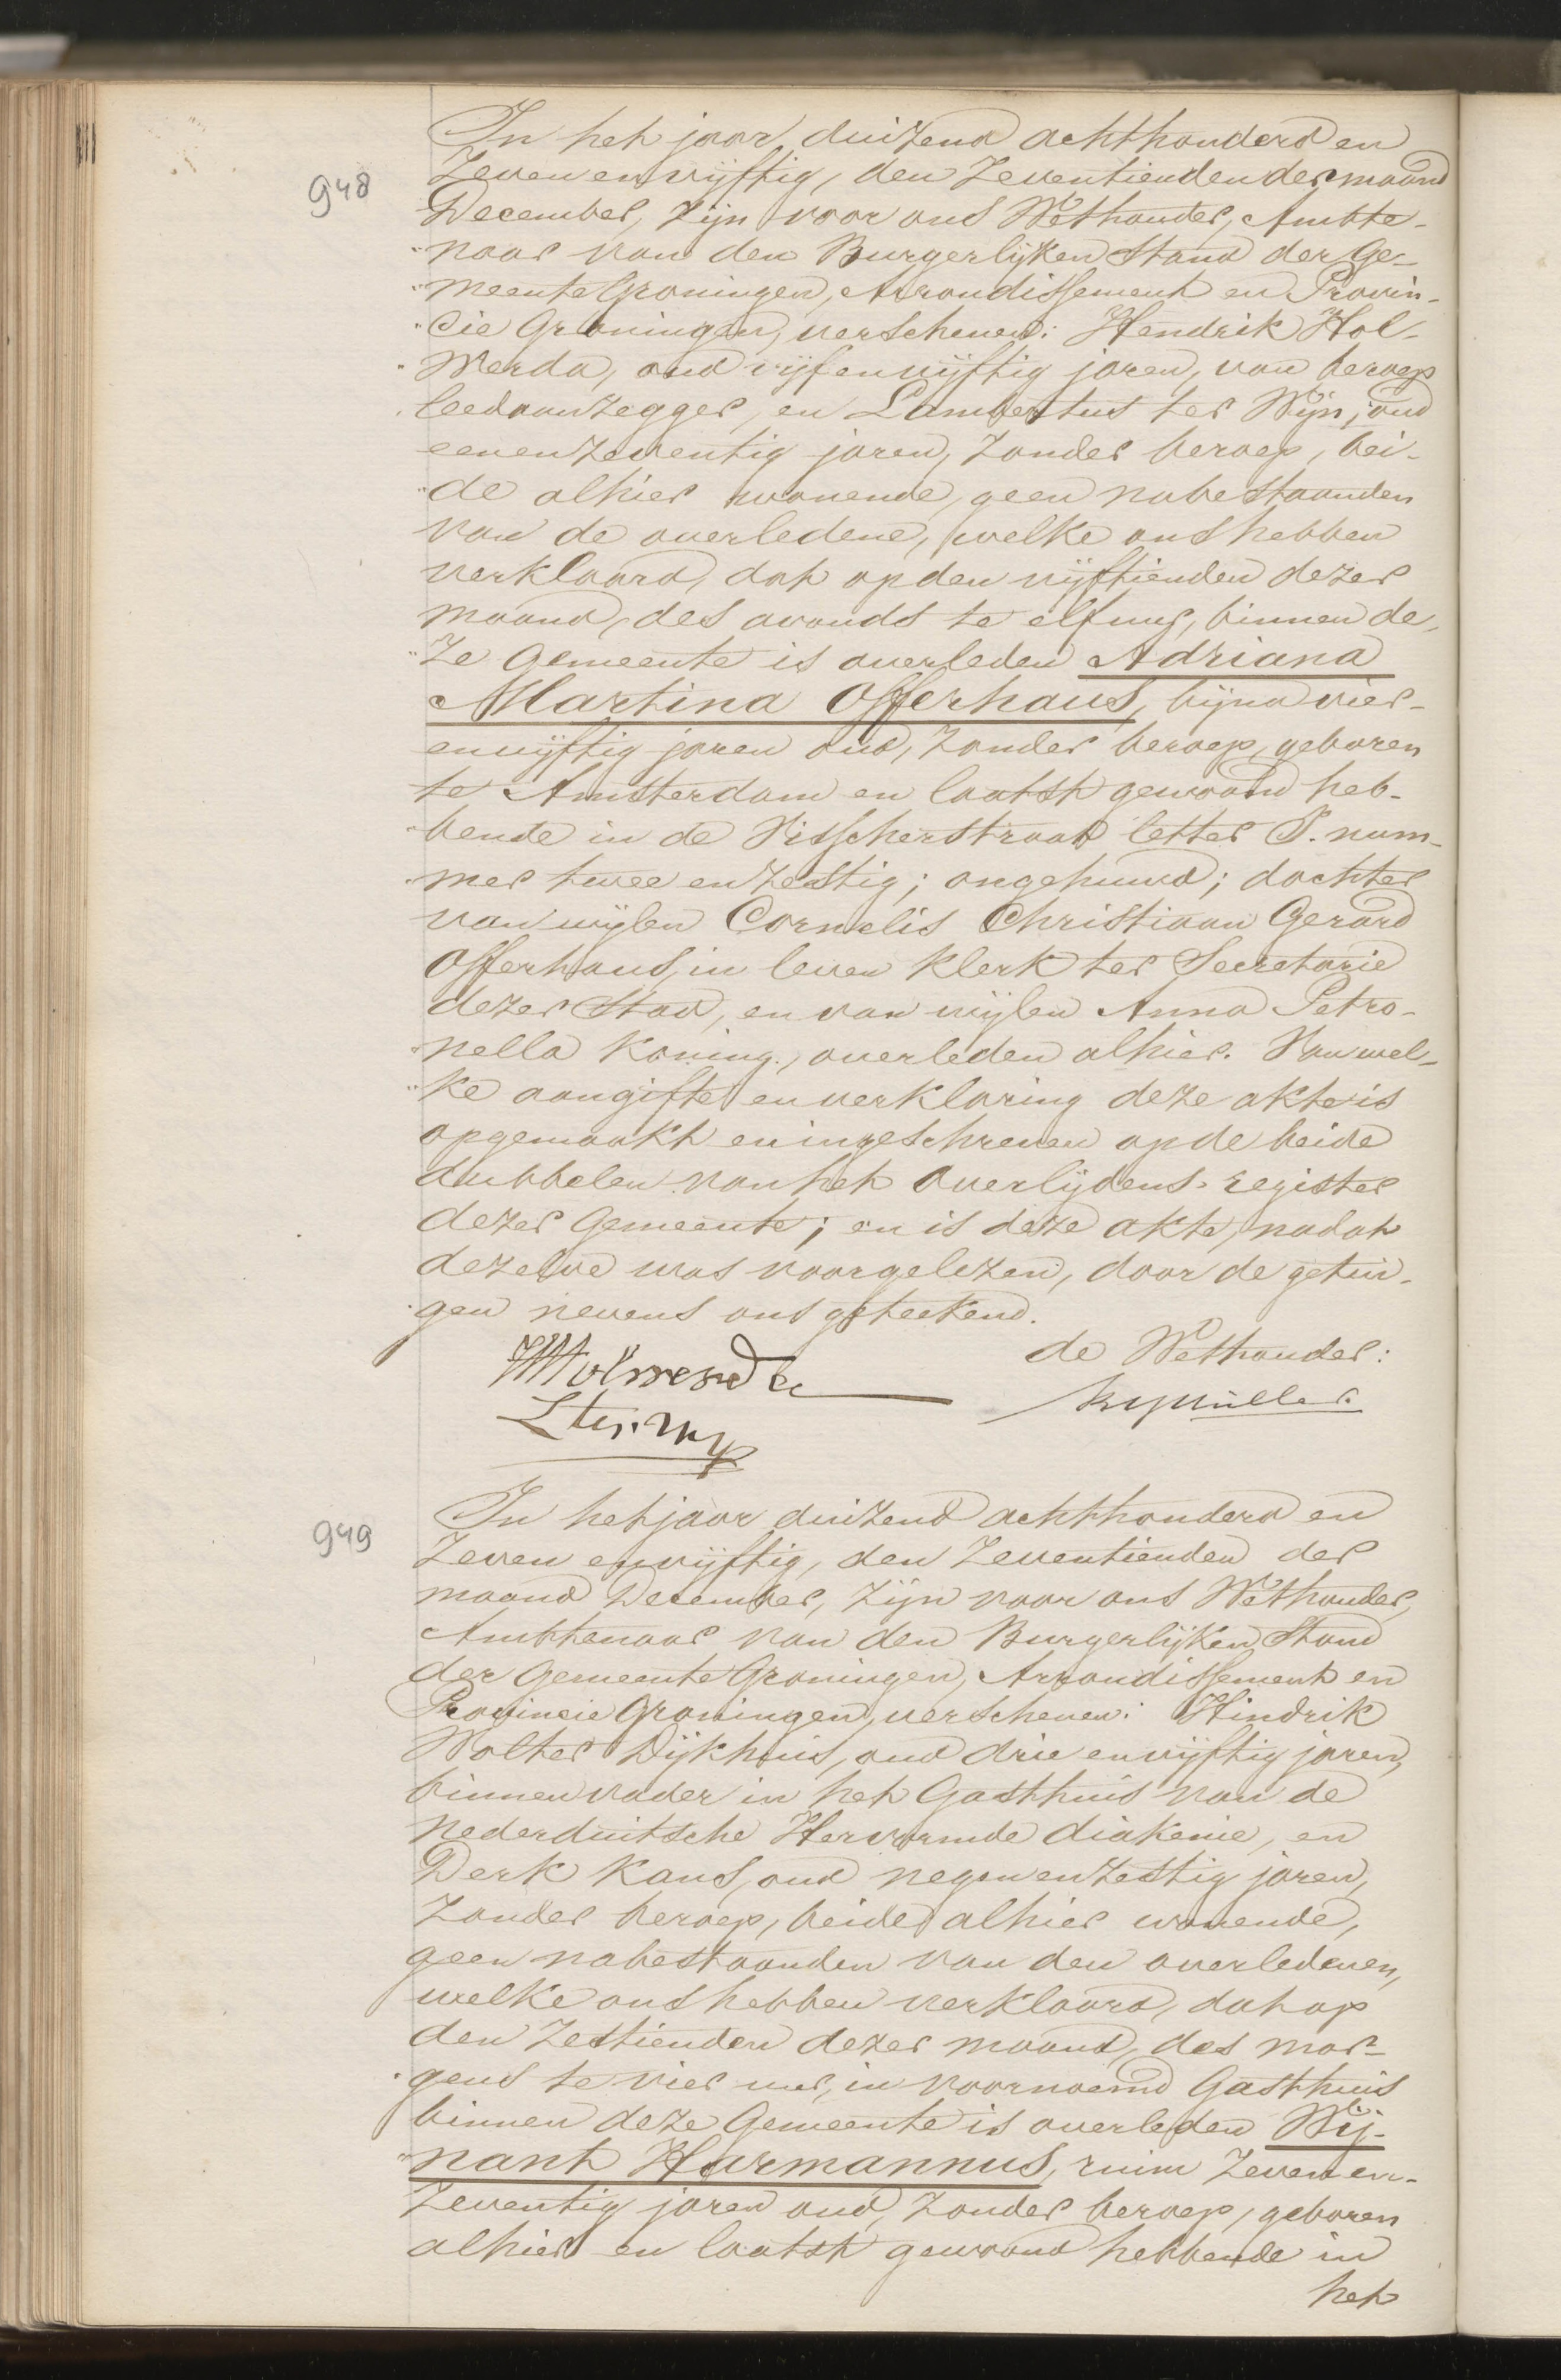 948
In het jaar duizend achthonderd en
Zeven en vijftig, den Zeventienden der maand
December, zijn voor ons Wethouder, Ambte-
"naar van den Burgerlijken Stand der Ge-
"meente Groningen, Arrondissement en Provin-
"cie Groningen, verschenen: Hendrik Hol-
"werda, oud vijf en vijftig jaren, van beroep
leedaanzegger, en Lambertus ter Wijn, oud
een en zeventig jaren, zonder beroep, bei-
"de alhier wonende, geen nabestaanden
van de overledene, welke ons hebben
verklaard, dat op den vijftienden dezer
maand, des avonds te elf uur, binnen de-
"ze Gemeente is overleden Adriana
Martina Offerhaus, bijna vier-
en vijftig jaren oud, zonder beroep, geboren
te Amsterdam en laatst gewoond heb-
"bende in de Visscherstraat letter P. num-
"mer twee en zestig; ongehuwd; dochter
van wijlen Cornelis Christiaan Gerard
Offerhaus, in leven klerk ter Secretarie
dezer Stad, en van wijlen Anna Petro-
"nella Koning, overleden alhier. Van wel-
"ke aangifte en verklaring deze akte is
opgemaakt en ingeschreven op de beide
dubbelen van het Overlijdens-register
dezer Gemeente; en is deze akte, nadat
dezelve was voorgelezen, door de getui-
"gen nevens ons geteekend.
de Wethouder:
HHolwerda
L ter Wijn
949
In het jaar duizend achthonderd en
Zeven en vijftig, den Zeventienden der
maand December, zijn voor ons Wethouder,
Ambtenaar van den Burgerlijken Stand
der Gemeente Groningen, Arrondissement en
Provincie Groningen, verschenen: Hindrik
Wolter Dijkhuis, oud drie en vijftig jaren,
binnenvader in het Gasthuis van de
Nederduitsche Hervormde diakenie, en
Derk Kans, oud negen en zestig jaren,
zonder beroep, beide alhier wonende,
geen nabestaanden van den overledenen,
welke ons hebben verklaard, dat op
den Zestienden dezer maand, des mor-
"gens te vier uur, in voornoemd Gasthuis
binnen deze Gemeente is overleden Wij-
"nant Harmannus, ruim zeven en-
zeventig jaren oud, zonder beroep, geboren
alhier en laatst gewoond hebbende in
het